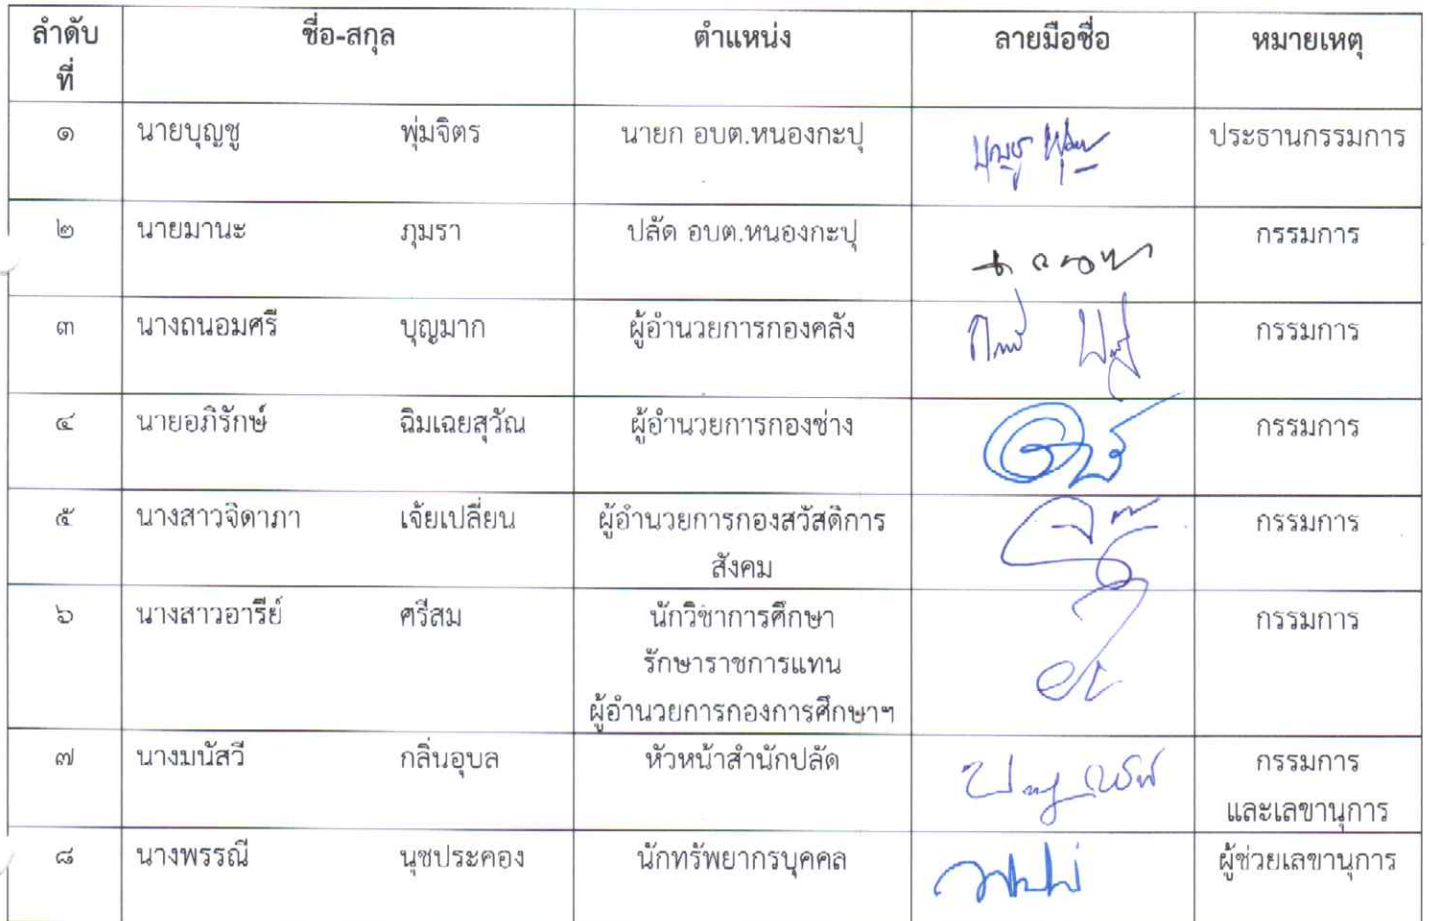 ลำดับที่ ชื่อ-สกุล ตำแหน่ง ลายมือชื่อ หมายเหตุ
๑ นายบุญชู พุ่มจิตร นายก อบต.หนองกะปุ ประธานกรรมการ
๒ นายมานะ ภุมรา ปลัด อบต.หนองกะปุ กรรมการ
๓ นางถนอมศรี บุญมาก ผู้อำนวยการกองคลัง กรรมการ
๔ นายอภิรักษ์ ฉิมเฉยสุวัณ ผู้อำนวยการกองช่าง กรรมการ
๕ นางสาวจิดาภา เจ้ยเปลี่ยน ผู้อำนวยการกองสวัสดิการ กรรมการ
สังคม
๖ นางสาวอารีย์ ศรีสม นักวิชาการศึกษา กรรมการ
รักษาราชการแทน
ผู้อำนวยการกองการศึกษาฯ
๗ นางมนัสวี กลิ่นอุบล หัวหน้าสำนักปลัด กรรมการ
และเลขานุการ
๘ นางพรรณี นุชประคอง นักทรัพยากรบุคคล ผู้ช่วยเลขานุการ